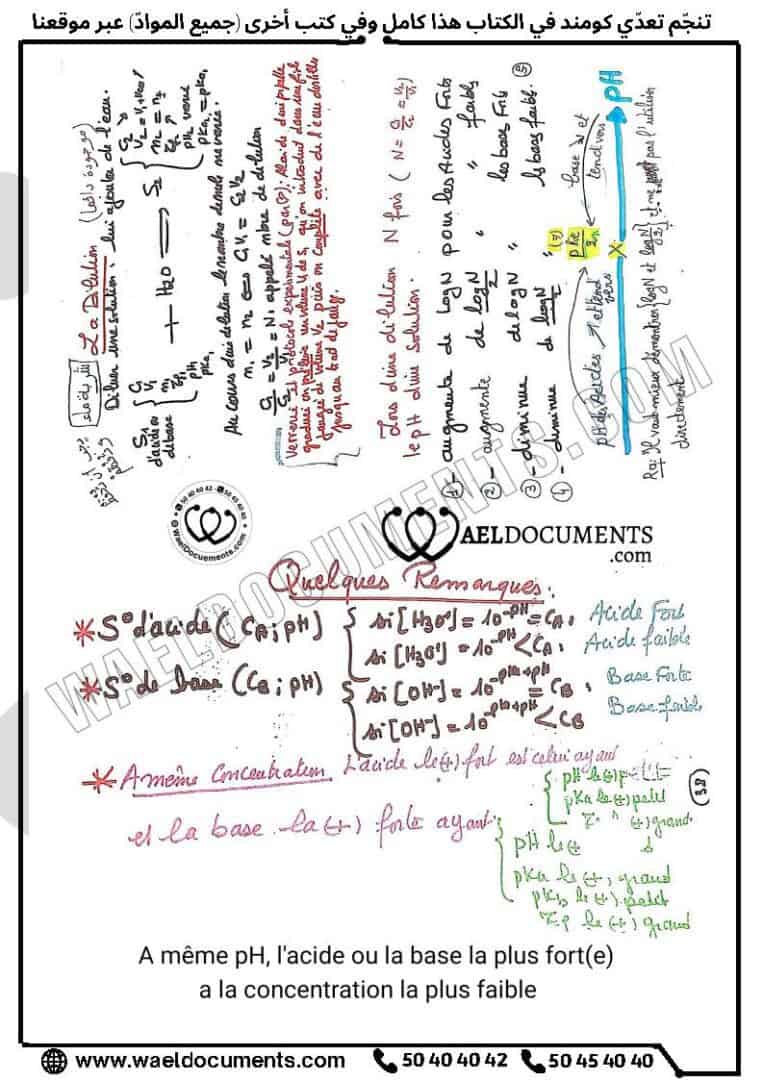 تنجّم تعدّي كومند في الكتاب هذا كامل وفي كتب أخرى (جميع الموادّ) عبر موقعنا
La Dilution (موجودة دائما)
Diluer une solution, lui ajouter de l'eau.
S₁ d'acide ou de base { C₁ V₁ n₁ pH₁ pKa₁ + H₂O ⟶ S₂ { C₂ ↘ V₂ = V₁ + Veau ↗ n₂ = n₁ pH₂ varié pKa₂ = pKa₁
Au cours d'une dilution le nombre de mole ne varie.
n₁ = n₂ ⟺ C₁V₁ = C₂V₂
C₁/C₂ = V₂/V₁ = N, appelé nbre de dilution
Verrerie et protocole expérimentale (par ex): A l'aide d'une pipette
graduée on prélève un volume V₁ de S₁ qu'on introduit dans une fiole
jaugée de volume V₂ puis on complète avec de l'eau distillée
jusqu'au trait de jauge.
Lors d'une dilution N fois (N = C₁/C₂ = V₂/V₁)
le pH d'une solution.
① - augmente de Log N pour les Acides Forts
② - augmente de logN/2 " " faibles
③ - diminue de log N " les bases Forts
④ - diminue de logN/2 " ls bases faibls.
pH des Acides ↗ et tend vers
pKe/2
(7)
base ↘ et tend vers
pH
Rq: Il vaut mieux démontrer {log N et logN/2} et ne pas l'utiliser
directement
50 40 40 42 - 50 45 40 40
WaelDocuements.com
WAELDOCUMENTS
.com
WAELDOCUMENTS.COM
Quelques Remarques:
* S° d'acide (CA ; pH) { si [H₃O⁺] = 10^-pH = CA, Acide Fort
si [H₃O⁺] = 10^-pH < CA, Acide faible
* S° de base (CB ; pH) { si [OH⁻] = 10^-pKe+pH = CB, Base Forte
si [OH⁻] = 10^-pKe+pH < CB Base faible
* A même Concentration L'acide le (+) fort est celui ayant
{ pH le (+) p
pKa le (+) petit
τ " (+) grand
(38)
et la base la (+) forte ayant
{ pH le (+
pKa le (+) grand
pKb le (+) petit
τf le (+) grand
A même pH, l'acide ou la base la plus fort(e)
a la concentration la plus faible
www.waeldocuments.com 50 40 40 42 50 45 40 40